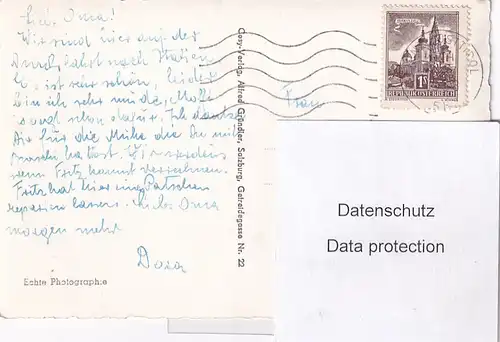 Wir sind hier auf der
Durchfahrt nach Italien
ist sehr schön, leider
bin ich sehr müde,
sorgt schon dafür. Ich danke
Dir für die Mühe die Du mit
hattest. Wir werdens
wenn Fritz kommt verrechnen.
Fritz hat hier einen Patschen
reparieren lassen.
morgen mehr
Dora
Echte Photographie
Cosy-Verlag, Alfred Gründler, Salzburg, Getreidegasse Nr. 22
Frau
1S
REPUBLIK ÖSTERREICH
Datenschutz
Data protection